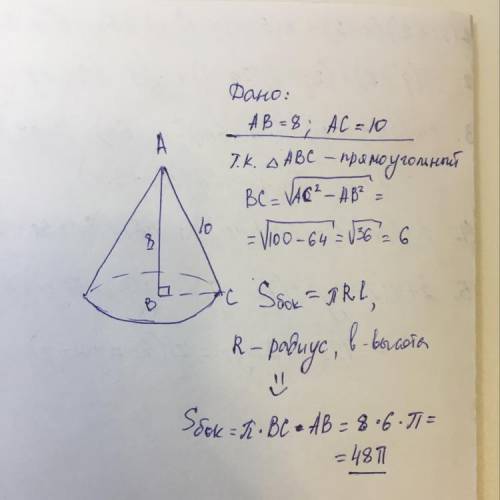 Дано:
AB = 8; AC = 10
Т.к. △ABC – прямоугольный
BC = √AC² – AB² =
= √100 – 64 = √36 = 6
Sбок = πRl,
R – радиус, в – высота
⇓
Sбок = π · BC · AB = 8 · 6 · π =
= 48π
A
8
10
B
C